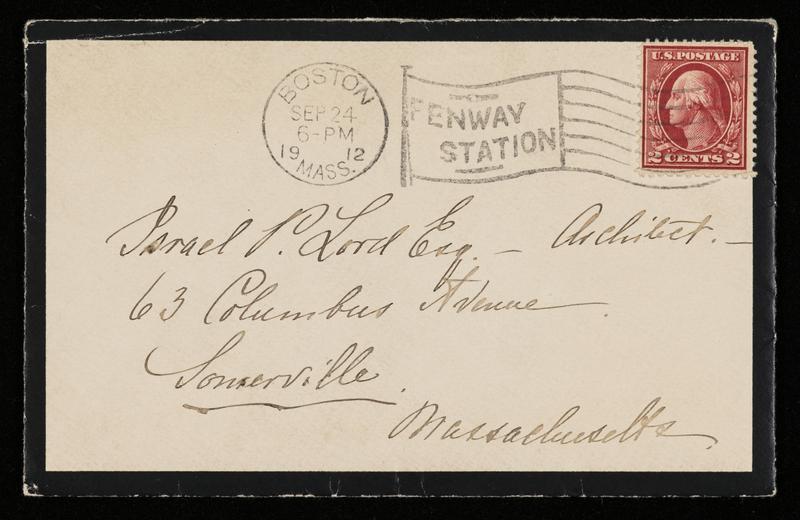 BOSTON
SEP 24
6-PM
19 12
MASS.
FENWAY
STATION
U.S. POSTAGE
2 CENTS 2
Israel P. Lord Esq. — Architect. —
63 Columbus Avenue.
Somerville.
Massachusetts.